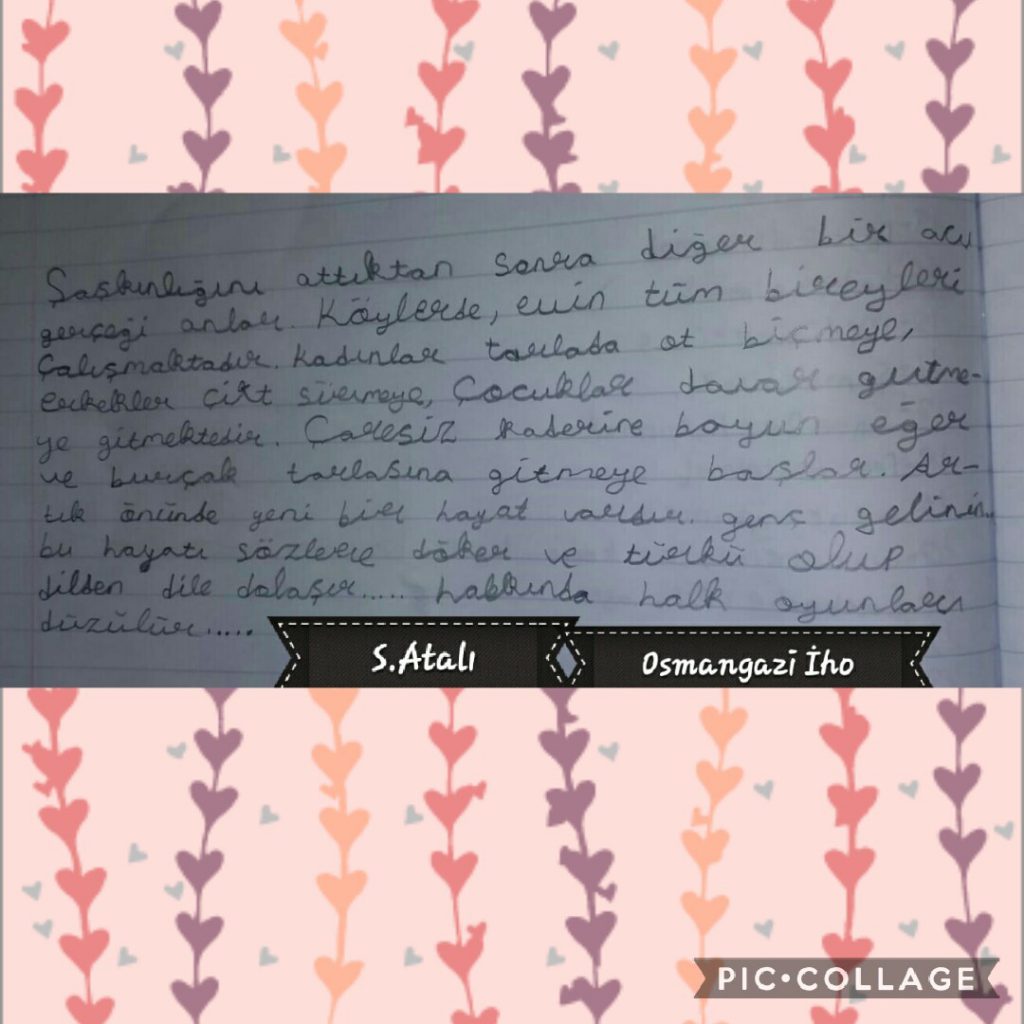 Şaşkınlığını attıktan sonra diğer bir acı
gerçeği anlar. Köylerde, evin tüm bireyleri
Çalışmaktadır. Kadınlar tarlada ot biçmeye,
erkekler çift sürmeye, Çocuklar davar gütme-
ye gitmektedir. Çaresiz kaderine boyun eğer
ve burçak tarlasına gitmeye başlar. Ar-
tık önünde yeni bir hayat vardır. genç gelinin
bu hayatı sözlere döker ve türkü olup
dilden dile dolaşır..... hakkında halk oyunları
düzülür.....
S.Atalı
Osmangazi İho
PIC•COLLAGE